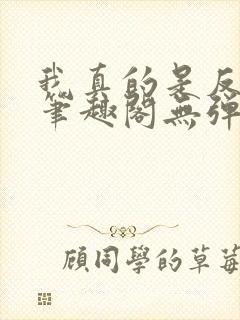 我真的是反
笔趣阁無彈
顧同學的草莓